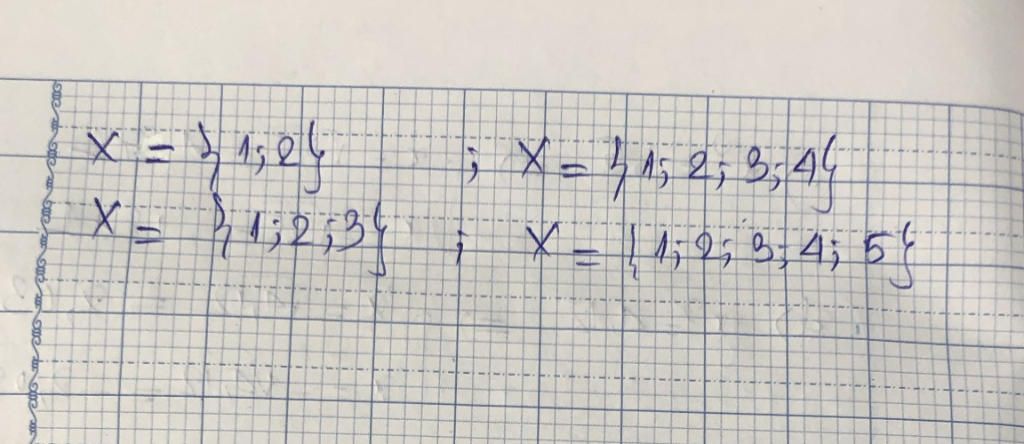 X = {1;2} ; X = {1;2;3;4}
X = {1;2;3} ; X = {1;2;3;4;5}